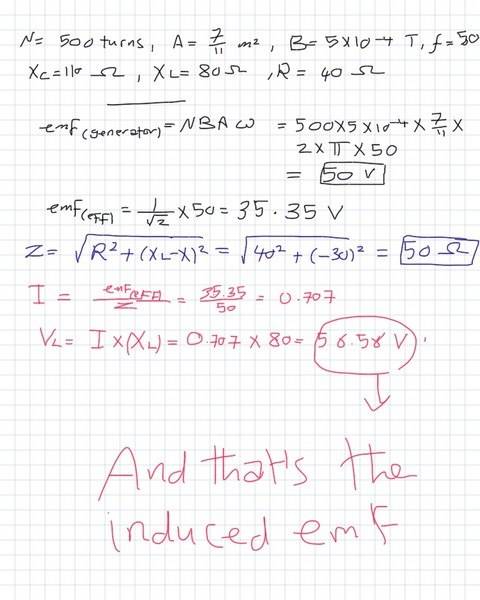 N= 500 turns, A= 7/11 m², B= 5×10-4 T, f=50
Xc=110 Ω, XL= 80Ω, R= 40 Ω
emf(generator)= NBAω = 500×5×10-4×7/11×
2×π×50
= 50 V
emf(eff)= 1/√2 ×50= 35.35 V
Z= √R²+(XL-X)² = √40²+(-30)² = 50 Ω
I = emf(eff)/Z = 35.35/50 = 0.707
VL= I×(XL)= 0.707 × 80= 56.56 V
And that's the
induced emf